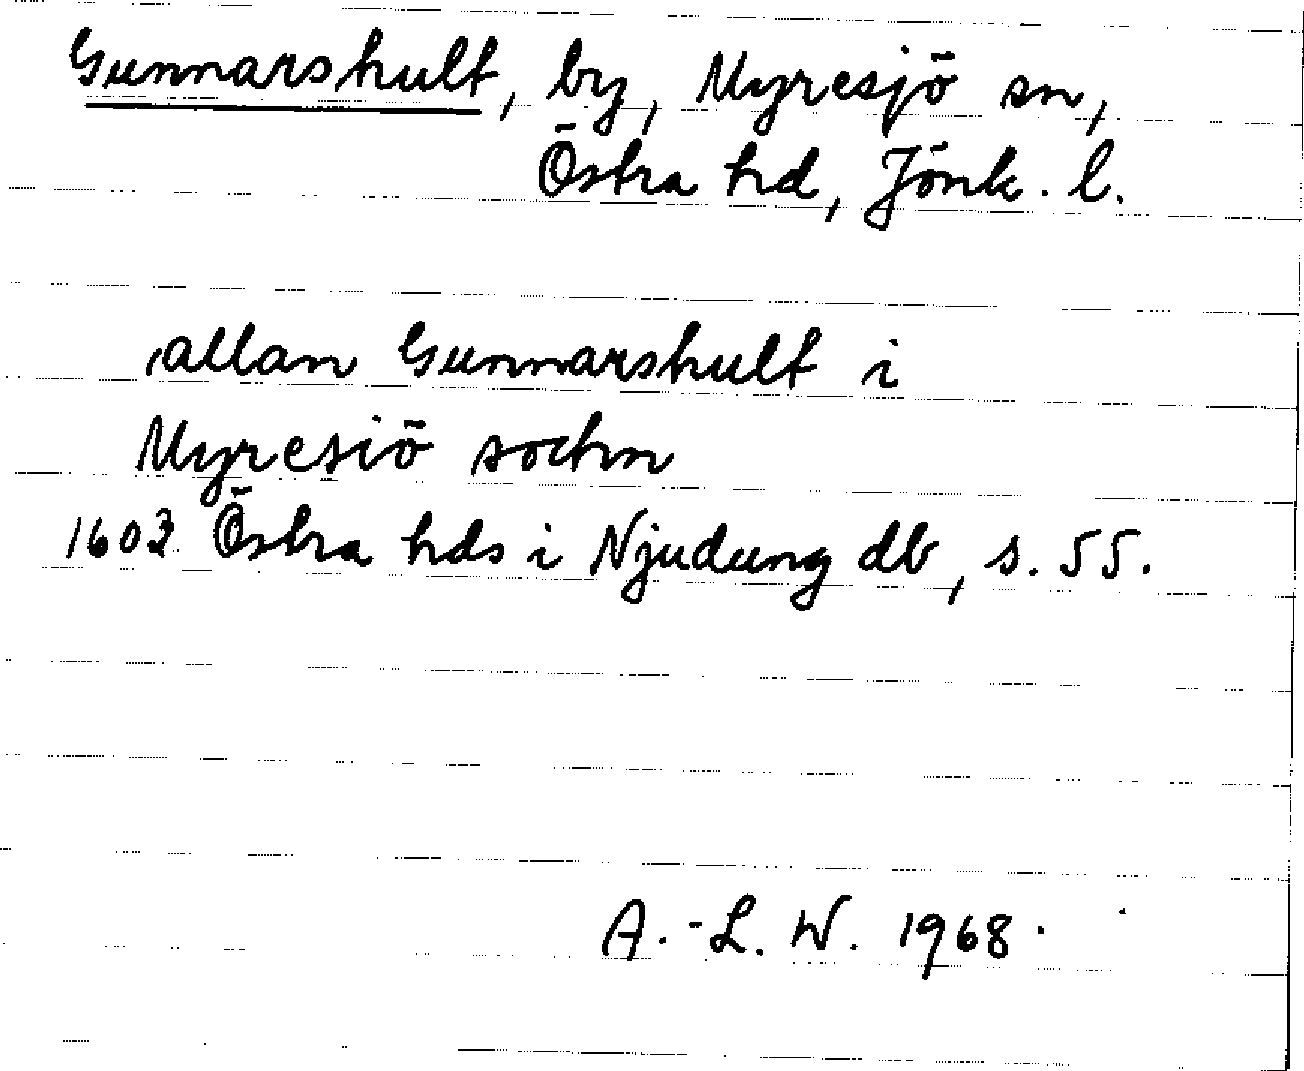 Gunnarshult, by, Myresjö sn,
Östra hd, Jönk. l.
allan Gunnarshult i
Myresiö sochn
1602 Östra hds i Njudung db, s. 55.
A.-L. W. 1968.